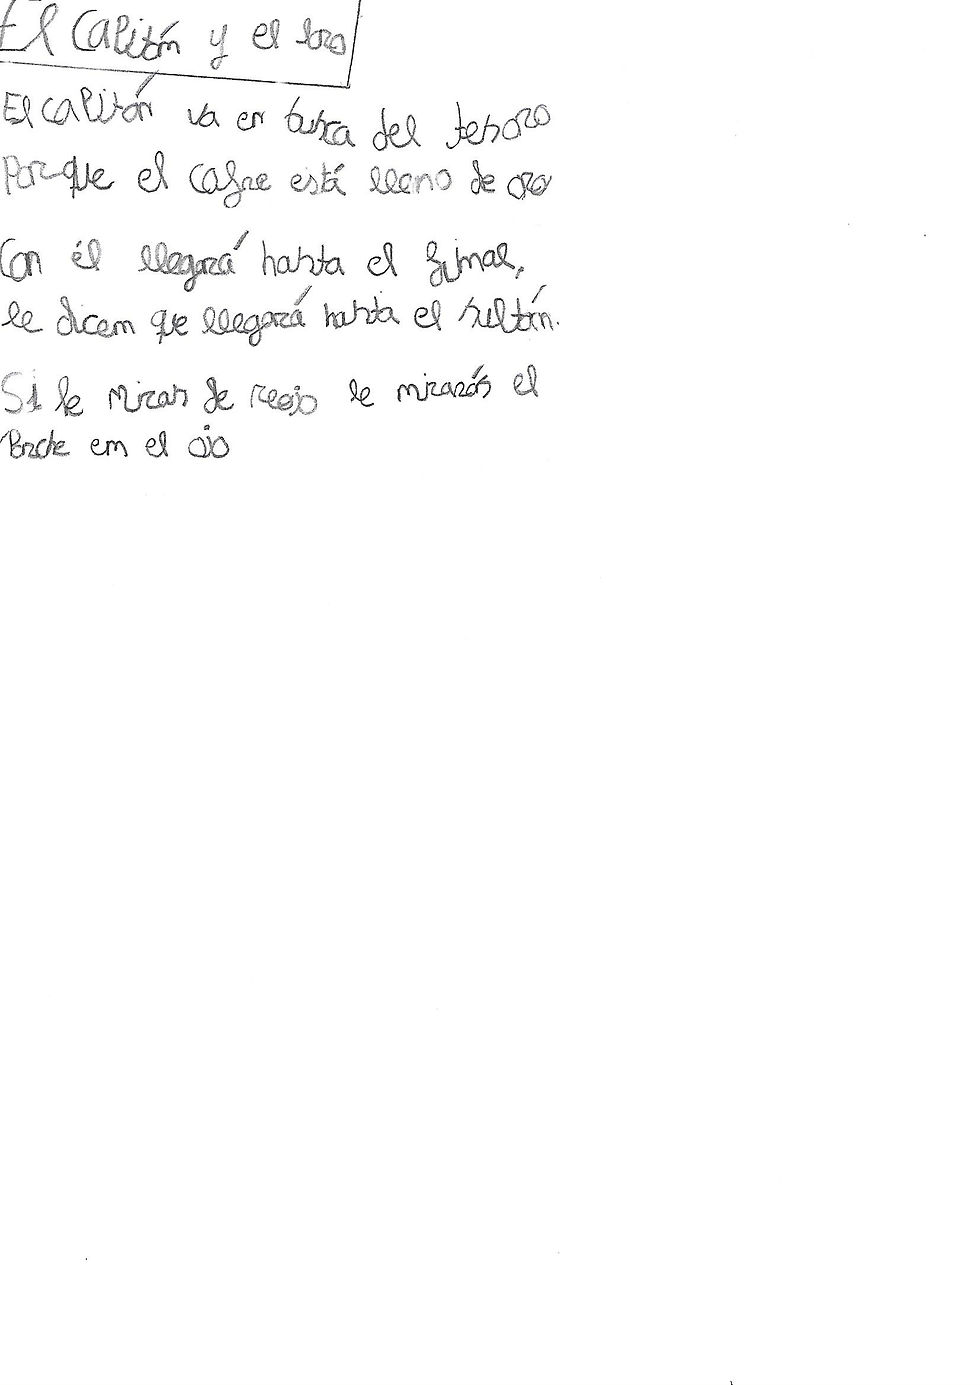 El Capitán y el loro
El capitán va en busca del tesoro
Porque el cofre está lleno de oro
Con él llegará hasta el final,
le dicen que llegará hasta el sultán.
Si le miras de reojo le mirarás el
Parche en el ojo